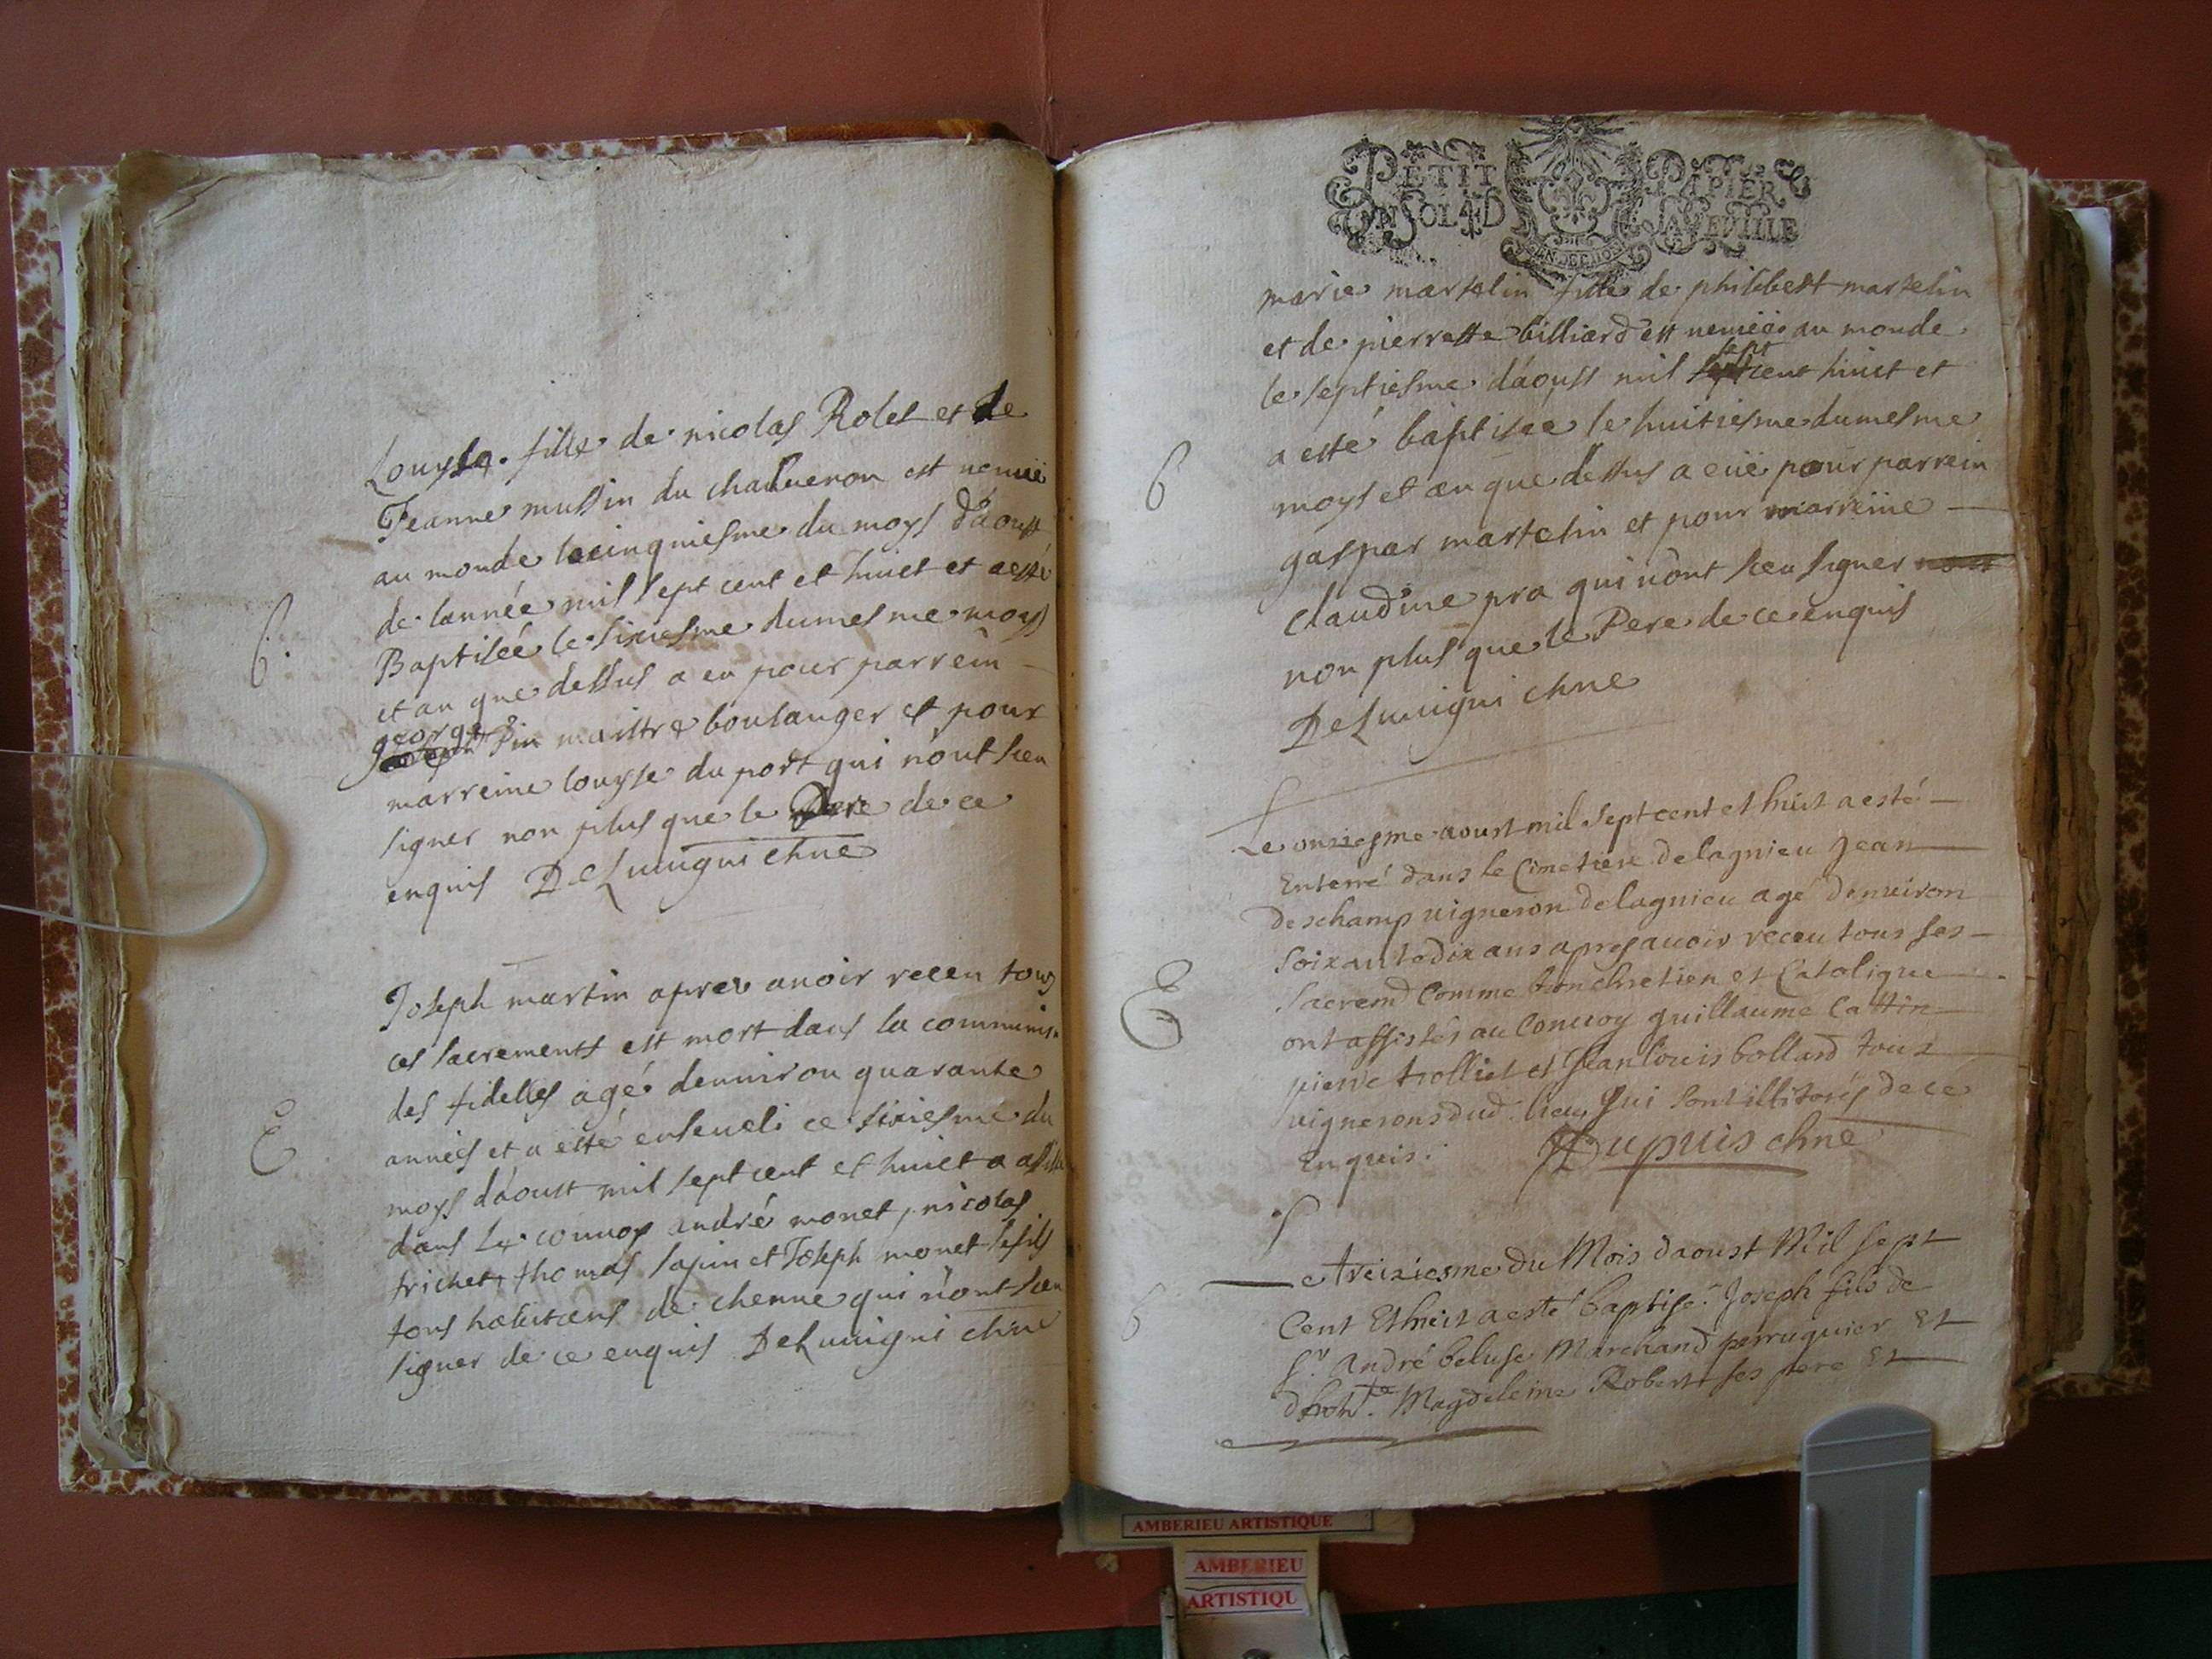 Louyse fille de nicolas Rolet et de
Jeanne mussin du est venuë
au monde le cinquiesme du moys d'aoust
de lannée mil sept cent et huict et a esté
B.
Baptisée le sixiesme du mesme moys
et an que dessus a eu pour parrein
george pin maistre boulanger et pour
marreine louyse du port qui n'ont sceu
signer non plus que le Pere de ce
enquis DeLuvigni chne
Joseph martin apres avoir receu tous
ces sacrements est mort dans la communion
des fidelles agé denviron quarante
E
années et a esté enseveli ce sixiesme du
moys d'aoust mil sept cent et huict a assisté
dans le convoy andré monet, nicolas
trichet, thomas sapin et Joseph monet le fils
tous habitans de chenne qui n'ont sceu
signer de ce enquis DeLuvigni chne
PETIT PAPIER
UN SOL 4 D LA FEUILLE
marie martelin fille de philibert martelin
et de pierrette billiard est venüe au monde
le septiesme d'aoust mil sept cent huict et
a esté baptisée le huitiesme du mesme
B
moys et an que dessus a eüe pour parrein
gaspar martelin et pour marreine
claudine pra qui n'ont sceu signer
non plus que le Pere de ce enquis
DeLuvigni chne
Le onziesme aoust mil sept cent et huit a esté
Enterré dans le Cimetiere de lagnieu Jean
deschamp vigneron de lagnieu agé denviron
soixante dix ans apres avoir receu tous ses
E
sacremt Comme bon chretien et Catolique
ont assistés au Convoy guillaume Cattin
pierre trolliet et Jean louis bollard tous
vignerons dud. lieu qui sont illitorés de ce
Enquis. Dupuis chne
Le treiziesme du Mois daoust Mil sept
B
Cent Et huit a esté baptisé Joseph fils de
Sr. André beluse Marchand perruquier Et
dhonte. Magdeleine Robert ses pere Et
AMBERIEU ARTISTIQUE
AMBERIEU
ARTISTIQU